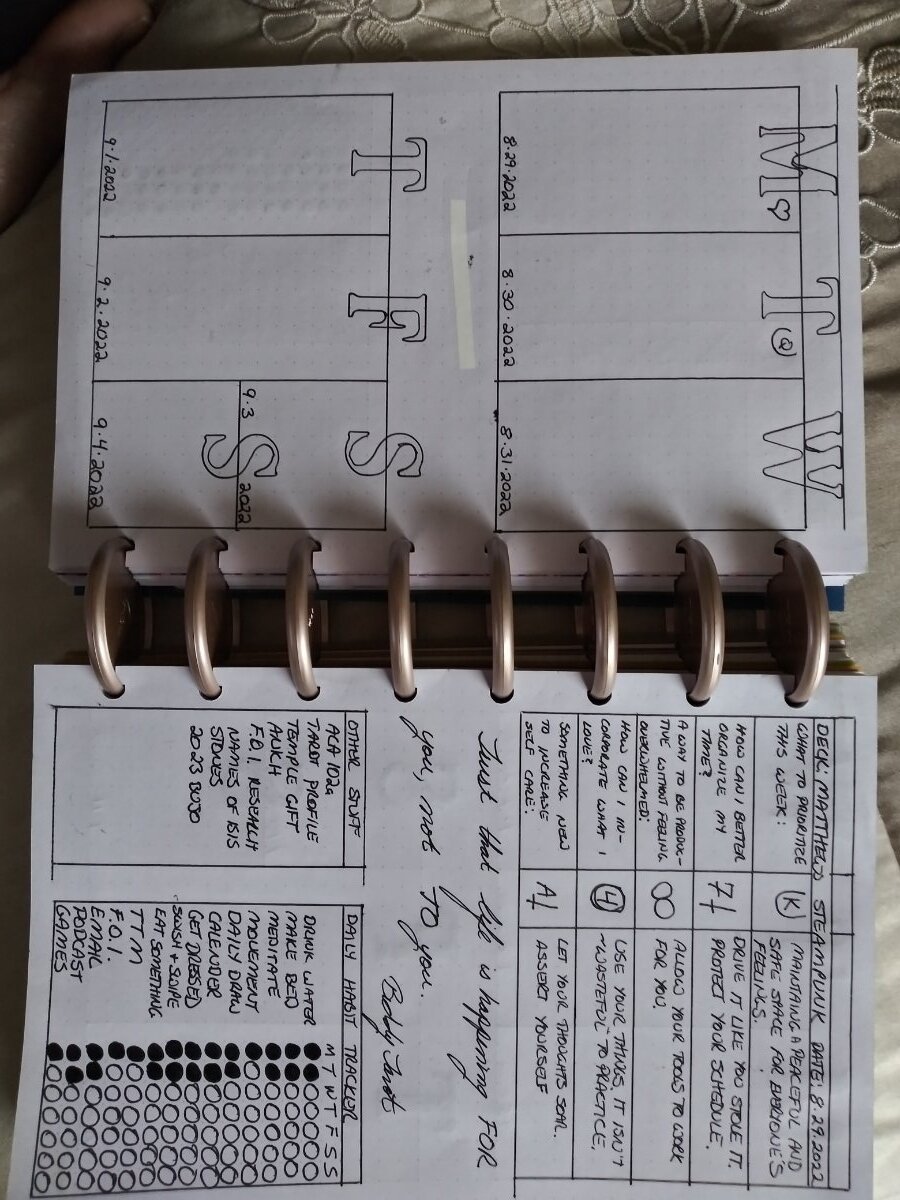 M ♡
8.29.2022
T Q
8.30.2022
W
8.31.2022
T
9.1.2022
F
9.2.2022
S
9.3 2022
S
9.4.2022
DECK: MATTHEWS STEAMPUNK DATE: 8.29.2022
WHAT TO PRIORITIZE
THIS WEEK:
K
MAINTAING A PEACEFUL AND
SAFE SPACE FOR EVERYONE'S
FEELINGS.
HOW CAN I BETTER
ORGANIZE MY
TIME?
7
DRIVE IT LIKE YOU STOLE IT.
PROTECT YOUR SCHEDULE.
A WAY TO BE PRODUC-
TIVE WITHOUT FEELING
OVERWHELMED:
∞
ALLOW YOUR TOOLS TO WORK
FOR YOU.
HOW CAN I IN-
CORPORATE WHAT I
LOVE?
4
USE YOUR THINGS, IT ISN'T
"WASTEFUL" TO PRACTICE.
SOMETHING NEW
TO INCREASE
SELF CARE:
A
LET YOUR THOUGHTS SOAR.
ASSERT YOURSELF
Trust that life is happening FOR
you, not TO you.
OTHER STUFF
ACA 102a
TAROT PROFILE
TEMPLE GIFT
ANKH
F.O.I. RESEARCH
NAMES OF ISIS
STONES
2023 BUJO
DAILY HABIT TRACKER
M T W T F S S
DRINK WATER
MAKE BED
MEDITATE
MOVEMENT
DAILY DRAW
CALENDER
GET DRESSED
SWISH + SWIPE
EAT SOMETHING
TTM
F.O.I.
EMAIL
PODCAST
GAMES